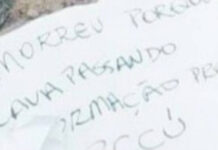 MORREU PORQUE
CAVA PASSANDO
ORMAÇÃO PR
CCÚ